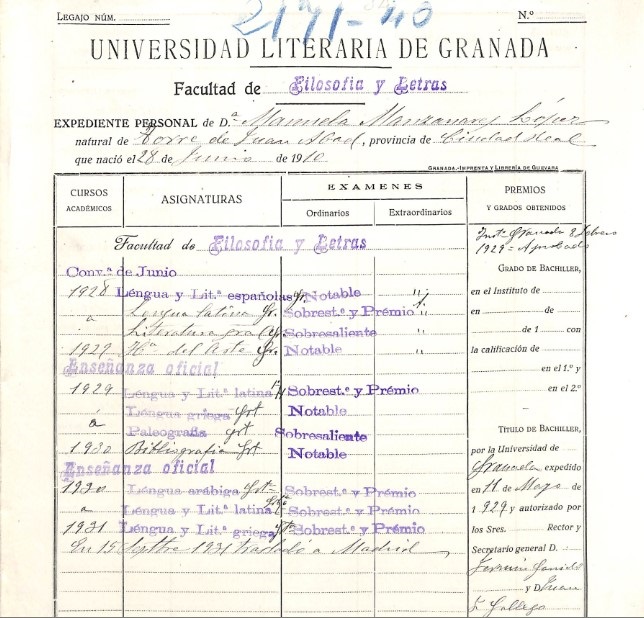 LEGAJO NÚM.
Nº
UNIVERSIDAD LITERARIA DE GRANADA
Facultad de Filosofía y Letras
EXPEDIENTE PERSONAL de D.ª Manuela Manzanares López
natural de Torre de Juan Abad, provincia de Ciudad Real
que nació el 28 de Junio de 1910
GRANADA.-IMPRENTA Y LIBRERÍA DE GUEVARA
CURSOS ACADÉMICOS
ASIGNATURAS
EXAMENES
Ordinarios
Extraordinarios
PREMIOS Y GRADOS OBTENIDOS
Facultad de Filosofía y Letras
Conv.ª de Junio
1928 Léngua y Lit.ª españolas Notable "
a Lengua latina Sobrest.e y Prémio "
Literatura Sobresaliente
1929 Hª del Arte Notable "
Enseñanza oficial
1929 Léngua y Lit.ª latina Sobrest.e y Prémio
a Léngua griega Notable
Paleografía Sobresaliente
1930 Bibliografía Notable
Enseñanza oficial
1930 Léngua arábiga Sobrest.e y Prémio
a Léngua y Lit.ª latina Sobrest.e y Prémio
1931 Léngua y Lit.ª griega Sobrest.e y Prémio
En 15 Septbre 1931 trasladó a Madrid
Instº Granada 8 Febrero
1929 - Aprobado
GRADO DE BACHILLER,
en el Instituto de
en de
de 1 con
la calificación de
en el 1.º y
en el 2.º
TITULO DE BACHILLER,
por la Universidad de
Granada expedido
en 11 de Mayo de
1929 y autorizado por
los Sres. Rector y
Secretario general D.
Fermín Garrido
y D Juan
F. Gallego